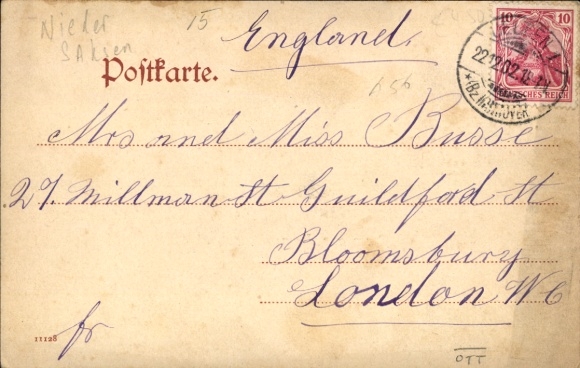 Nieder
Saksen
15
England.
10 10
DEUTSCHES REICH
22.12.02.
*(Bz. Hannover)
Postkarte.
656
Mrs and Miss Busse
27. Millman St Guildford St
Bloomsbury
London W C
fr
11128
OTT